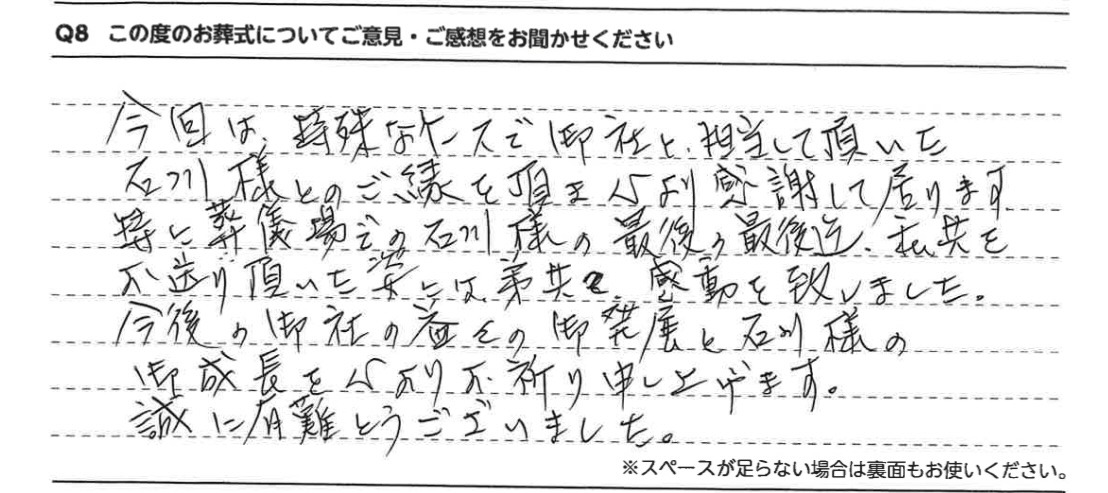 Q8 この度のお葬式についてご意見・ご感想をお聞かせください
今回は、特殊なケースで御社と、担当して頂いた
石川様とのご縁を頂き心より感謝して居ります
特に葬儀場での石川様の最後の最後迄、私共を
お送り頂いた姿には、弟共々、感動を致しました。
今後の御社の益々の御発展と石川様の
御成長を心よりお祈り申し上げます。
誠に有難とうございました。
※スペースが足らない場合は裏面もお使いください。